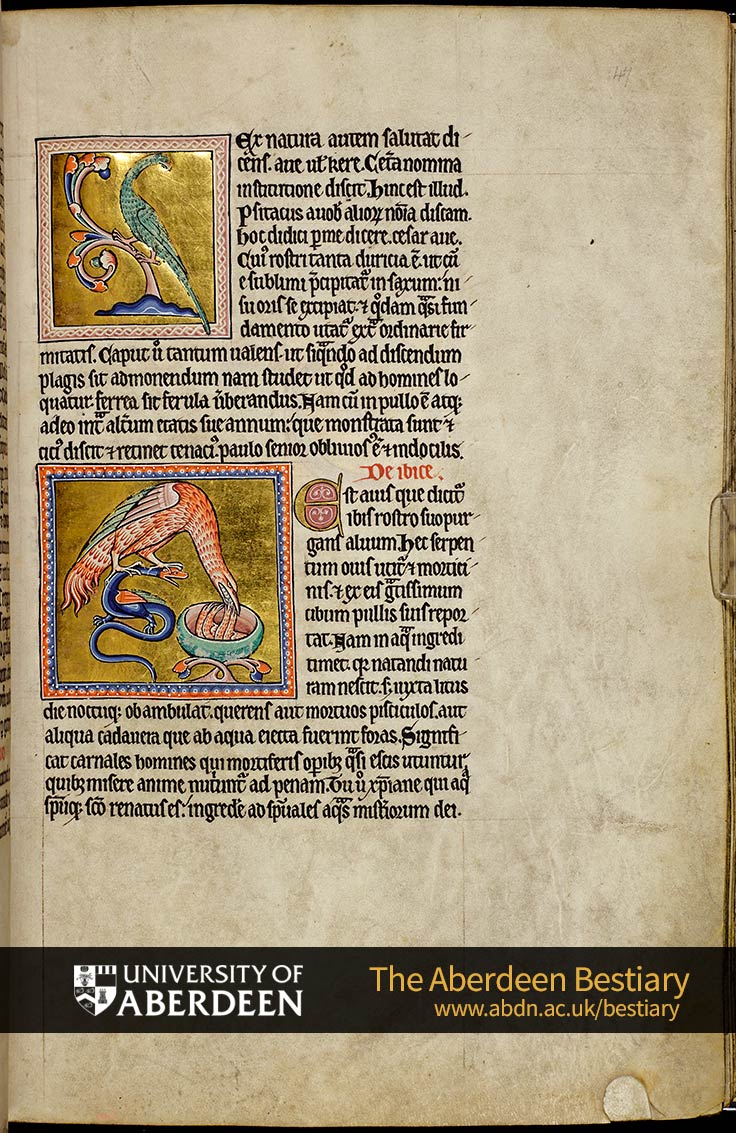 47
Ex natura autem salutat di
cens. aue uł kere. Cet̃a nomina
institutione discit. hinc est illud.
Psitacus a uob̃ alioꝝ nõia discam.
hoc didici p̱ me dicere. cesar aue.
Cui᷒ rostri tanta duricia ẽ. ut cũ
e sublimi p̃cipitat᷑ in saxum: ni
su oris se excipiat. ⁊ q̇dam q̃si fun
damento utat᷑ ext̃ ordinarie fir
mitatis. Caput ũ tantum ualens. ut siq̃ndo ad discendum
plagis sit admonendum nam studet ut qđ ad homines lo
quatur. ferrea sit ferula ũberandus. Nam cũ in pullo ẽ atq:
adeo int̃ alt̃um etatis sue annum: que monstrata sunt ⁊
citi᷒ discit ⁊ retinet tenaci᷒. paulo senior obliuios᷒ ẽ ⁊ indocilis.
De ibice.
Est auis que dicit᷑
ibis rostro suo pur
gans aluum. Hec serpen
tum ouis utit᷑ ⁊ mortici
nis. ⁊ ex eis g̃tissimum
cibum pullis suis repor
tat. Nam in aq̃ ingredi
timet. q̱ natandi natu
ram nescit. s; iuxta litus
die noctuq: obambulat. querens aut mortuos pisciculos. aut
aliqua cadauera que ab aqua eiecta fuerint foras. Signifi
cat carnales homines qui mortiferis opib; q̃si escis utuntur,
quib; misere anime nut̾unt᷑ ad penam. Tu ũ xp̃iane qui aq̃
sp̃uq: sc̃o renatus es: ingredere ad sp̃uales aq̃s mist̾iorum dei.
UNIVERSITY OF
ABERDEEN
The Aberdeen Bestiary
www.abdn.ac.uk/bestiary